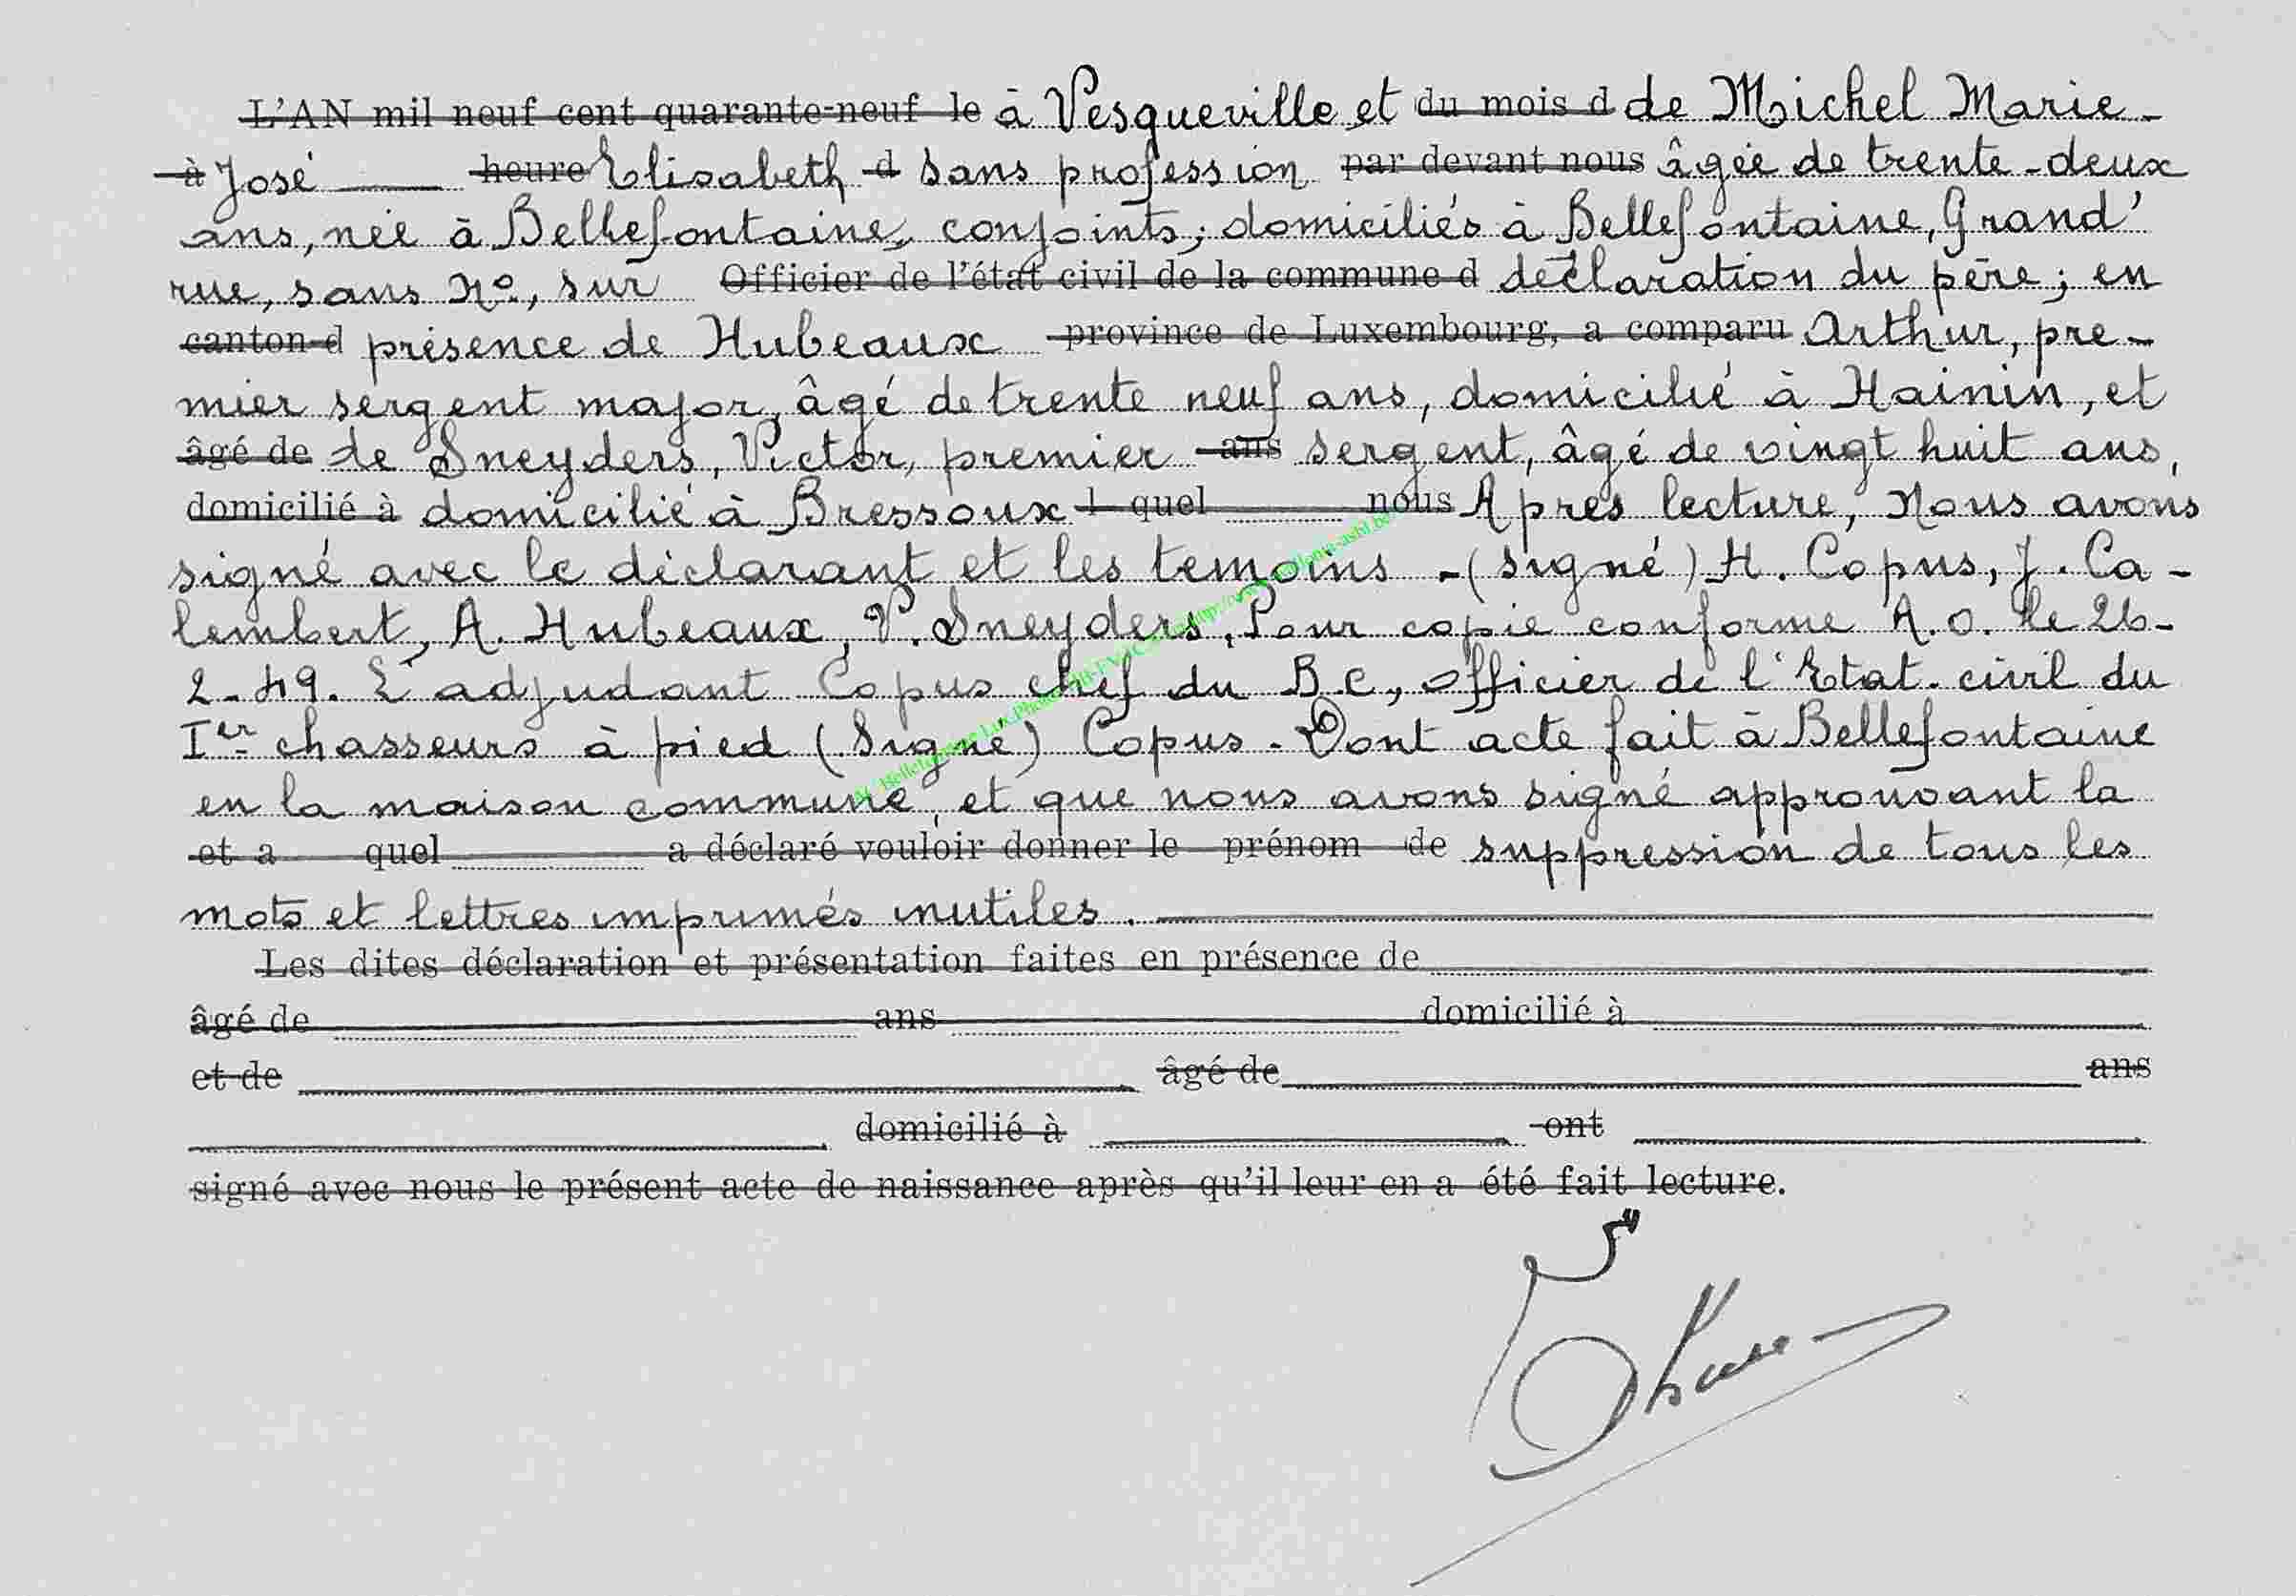 L'AN mil neuf cent quarante-neuf le à Vesqueville et du mois d de Michel Marie-
à José heure Elisabeth d sans profession par devant nous âgée de trente-deux
ans, née à Bellefontaine, conjoints; domiciliés à Bellefontaine, Grand'
rue, sans No., sur Officier de l'état civil de la commune d déclaration du père; en
canton d présence de Hubeaux province de Luxembourg, a comparu Arthur, pre-
mier sergent major, âgé de trente neuf ans, domicilié à Hainin, et
âgé de de Sneyders, Victor, premier ans sergent, âgé de vingt huit ans,
domicilié à domicilié à Bressoux l quel nous Après lecture, Nous avons
signé avec le déclarant et les temoins -(signé) H. Copus, J. Ca-
lembert, A. Hubeaux, V. Sneyders, Pour copie conforme A.O. le 26-
2-49. L'adjudant Copus chef du B.C, officier de l'Etat-civil du
Ier chasseurs à pied (Signé) Copus. Dont acte fait à Bellefontaine
en la maison commune, et que nous avons signé approuvant la
et a quel a déclaré vouloir donner le prénom de suppression de tous les
mots et lettres imprimés inutiles.
Les dites déclaration et présentation faites en présence de
âgé de ans domicilié à
et de âgé de ans
domicilié à ont
signé avec nous le présent acte de naissance après qu'il leur en a été fait lecture.